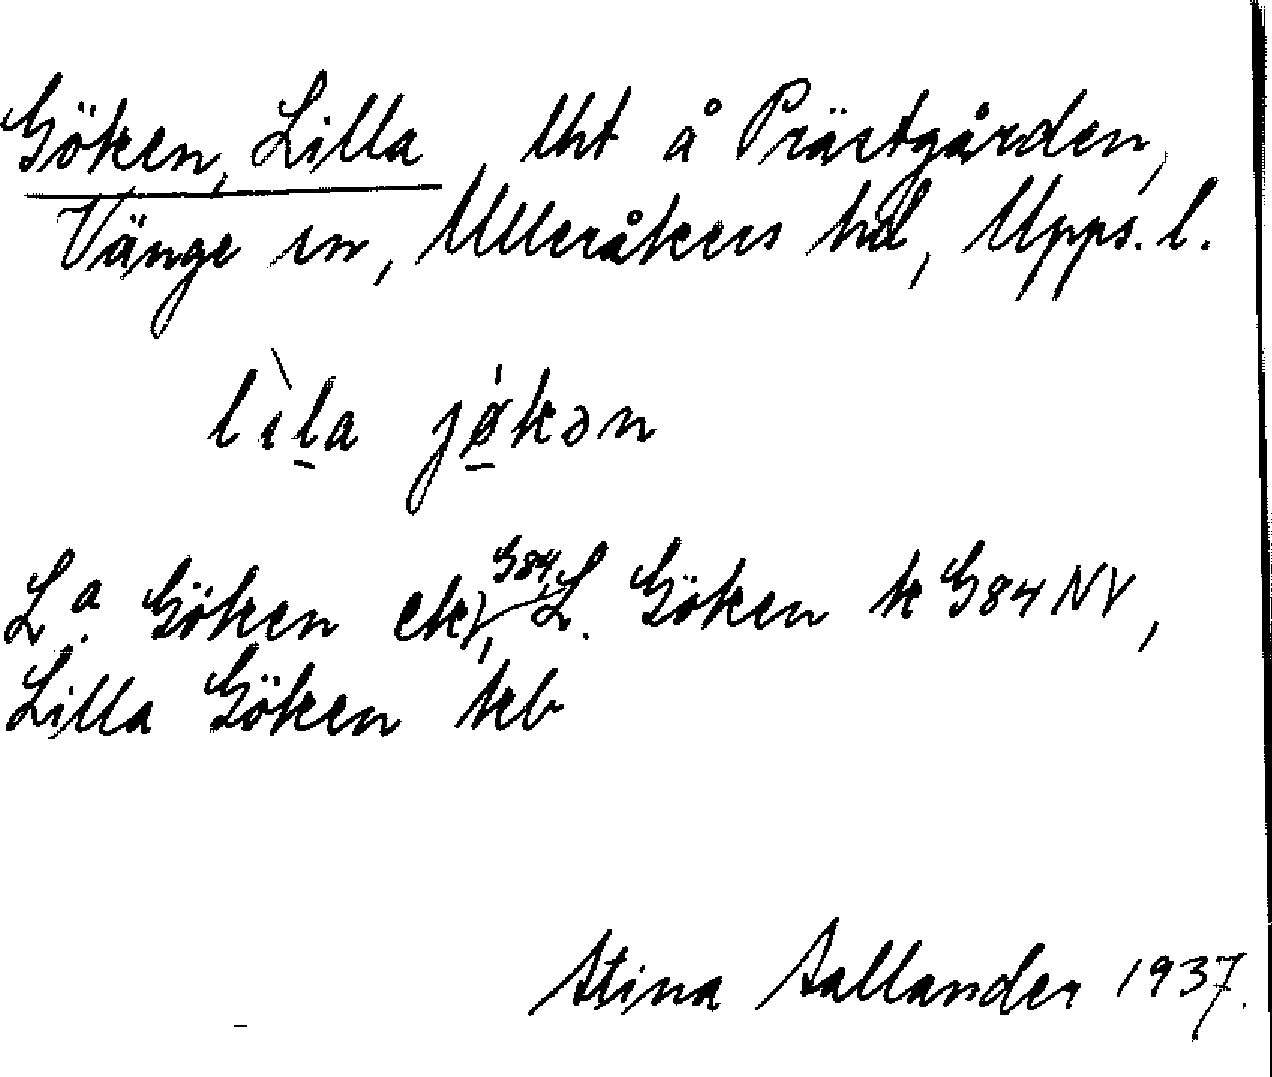 Göken, Lilla, lht å Prästgården,
Vänge sn, Ulleråkers hd, Upps. l.
lìla jø̀kən
L.a Göken ek, G84, L. Göken k G84 NV,
Lilla Göken kb
Stina Sallander 1937.